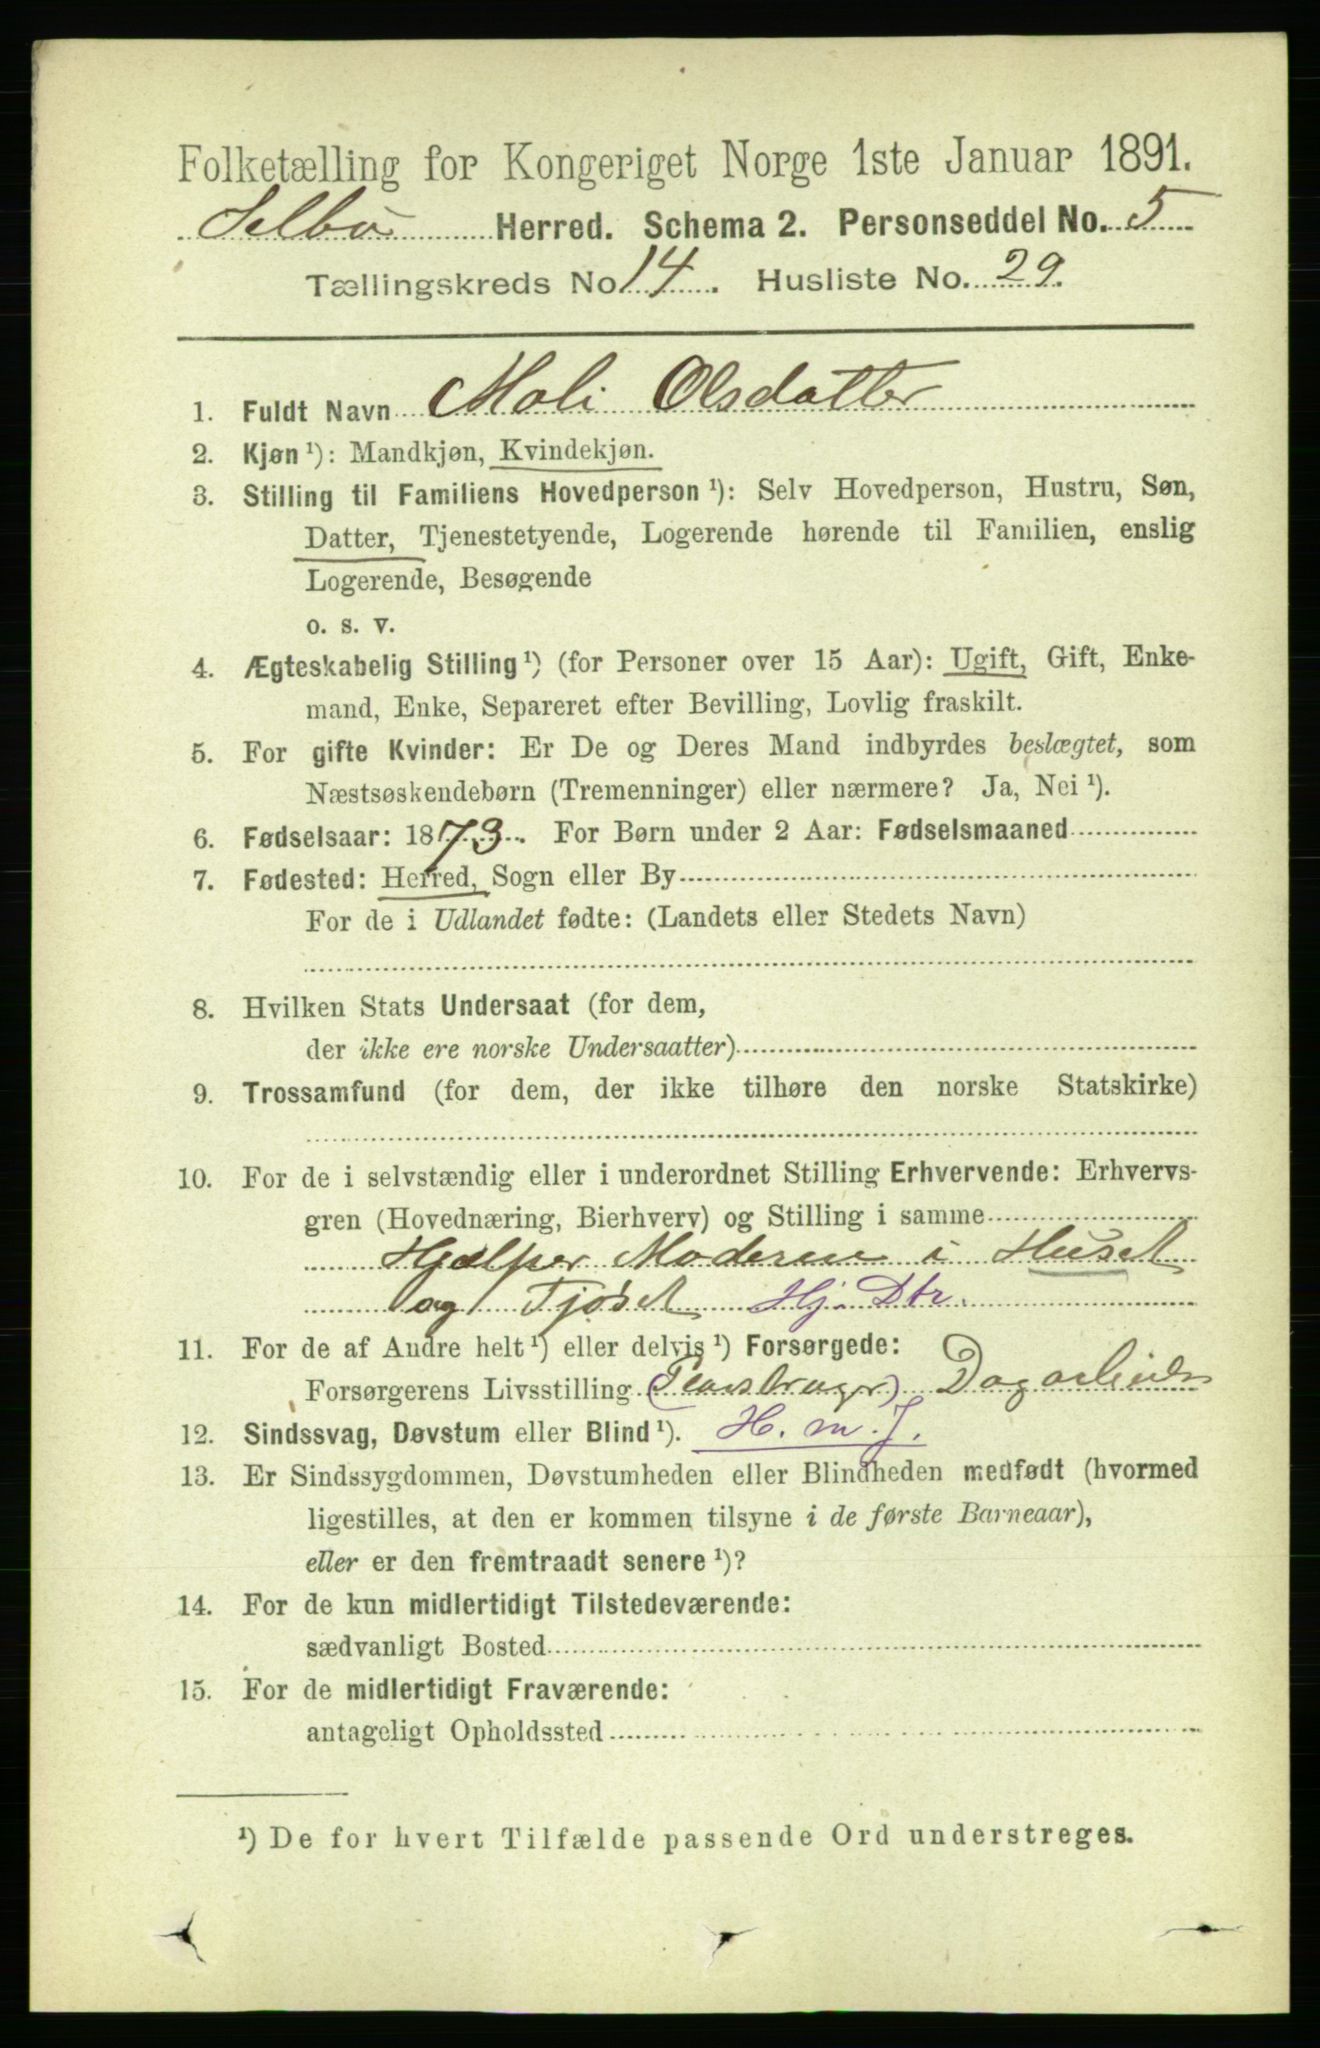 Folketælling for Kongeriget Norge 1ste Januar 1891.
Selbu Herred. Schema 2. Personseddel No. 5
Tællingskreds No 14. Husliste No. 29.
1. Fuldt Navn Mali Olsdatter
2. Kjøn ¹): Mandkjøn, Kvindekjøn.
3. Stilling til Familiens Hovedperson ¹): Selv Hovedperson, Hustru, Søn,
Datter, Tjenestetyende, Logerende hørende til Familien, enslig
Logerende, Besøgende
o. s. v.
4. Ægteskabelig Stilling ¹) (for Personer over 15 Aar): Ugift, Gift, Enke-
mand, Enke, Separeret efter Bevilling, Lovlig fraskilt.
5. For gifte Kvinder: Er De og Deres Mand indbyrdes beslægtet, som
Næstsøskendebørn (Tremenninger) eller nærmere? Ja, Nei ¹).
6. Fødselsaar: 1873. For Børn under 2 Aar: Fødselsmaaned
7. Fødested: Herred, Sogn eller By
For de i Udlandet fødte: (Landets eller Stedets Navn)
8. Hvilken Stats Undersaat (for dem,
der ikke ere norske Undersaatter)
9. Trossamfund (for dem, der ikke tilhøre den norske Statskirke)
10. For de i selvstændig eller i underordnet Stilling Erhvervende: Erhvervs-
gren (Hovednæring, Bierhverv) og Stilling i samme
Hjælper Moderen i Huset
og Fjøset Hj. Dtr.
11. For de af Andre helt ¹) eller delvis ¹) Forsørgede:
Forsørgerens Livsstilling (Pladsbruger) Dagarbeider
12. Sindssvag, Døvstum eller Blind ¹). H. m. J.
13. Er Sindssygdommen, Døvstumheden eller Blindheden medfødt (hvormed
ligestilles, at den er kommen tilsyne i de første Barneaar),
eller er den fremtraadt senere ¹)?
14. For de kun midlertidigt Tilstedeværende:
sædvanligt Bosted
15. For de midlertidigt Fraværende:
antageligt Opholdssted
¹) De for hvert Tilfælde passende Ord understreges.